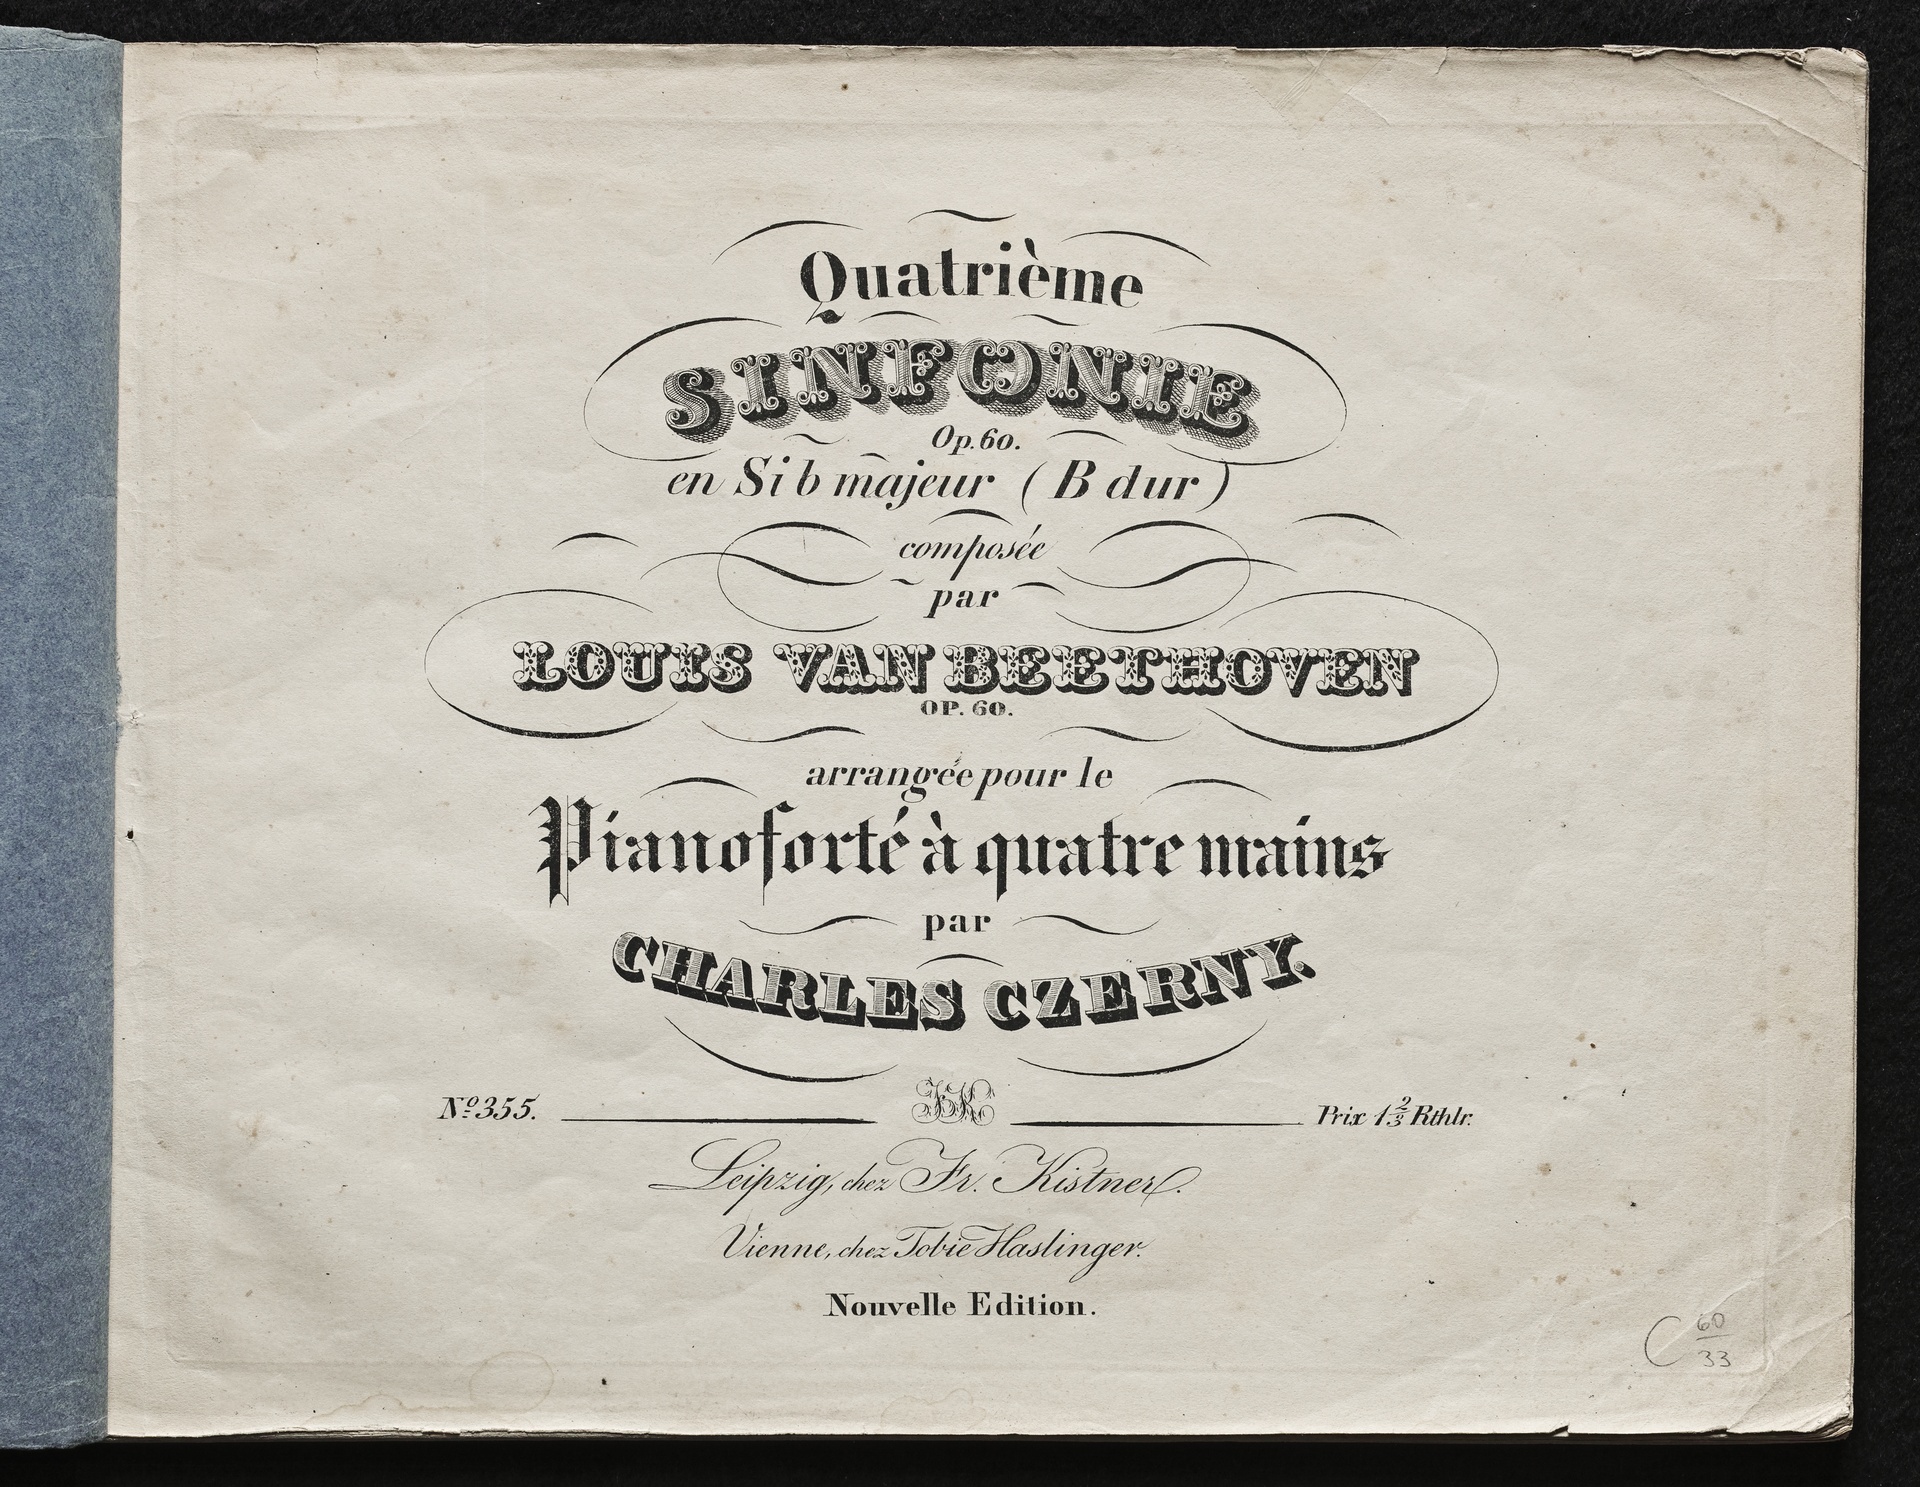 Quatrième
SINFONIE
Op. 60.
en Si b majeur (B dur)
composée
par
LOUIS VAN BEETHOVEN
OP. 60.
arrangée pour le
Pianoforté à quatre mains
par
CHARLES CZERNY.
No. 355. FK Prix 1 2/3 Rthlr.
Leipzig, chez Fr. Kistner.
Vienne, chez Tobie Haslinger.
Nouvelle Edition.
C 60/33